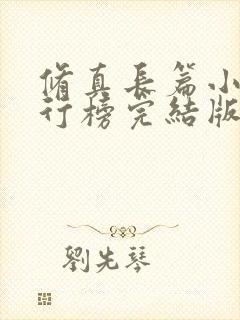 脩真長篇小
行榜完結版
劉先琴